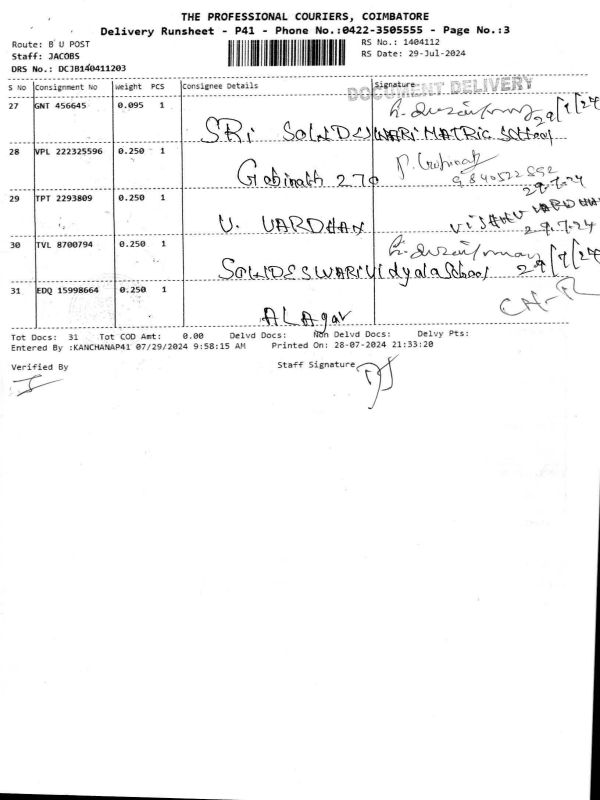 THE PROFESSIONAL COURIERS, COIMBATORE
Delivery Runsheet - P41 - Phone No.:0422-3505555 - Page No.:3
Route: B U POST
RS No.: 1404112
Staff: JACOBS
RS Date: 29-Jul-2024
DRS No.: DCJB140411203
S No Consignment No Weight PCS Consignee Details Signature
DOCUMENT DELIVERY
27 GNT 456645 0.095 1
29/7/24
SRi MATRIC School
28 VPL 222325596 0.250 1
Gobinath 270
9840522892
29.7.24
29 TPT 2293809 0.250 1
V. VARDHAN
VISHNU VARDHAN
29.7.24
30 TVL 8700794 0.250 1
29/7/24
Vidyala School
31 EDQ 15998664 0.250 1
ALAgar
Tot Docs: 31 Tot COD Amt: 0.00 Delvd Docs: Non Delvd Docs: Delvy Pts:
Entered By :KANCHANAP41 07/29/2024 9:58:15 AM Printed On: 28-07-2024 21:33:20
Verified By
Staff Signature